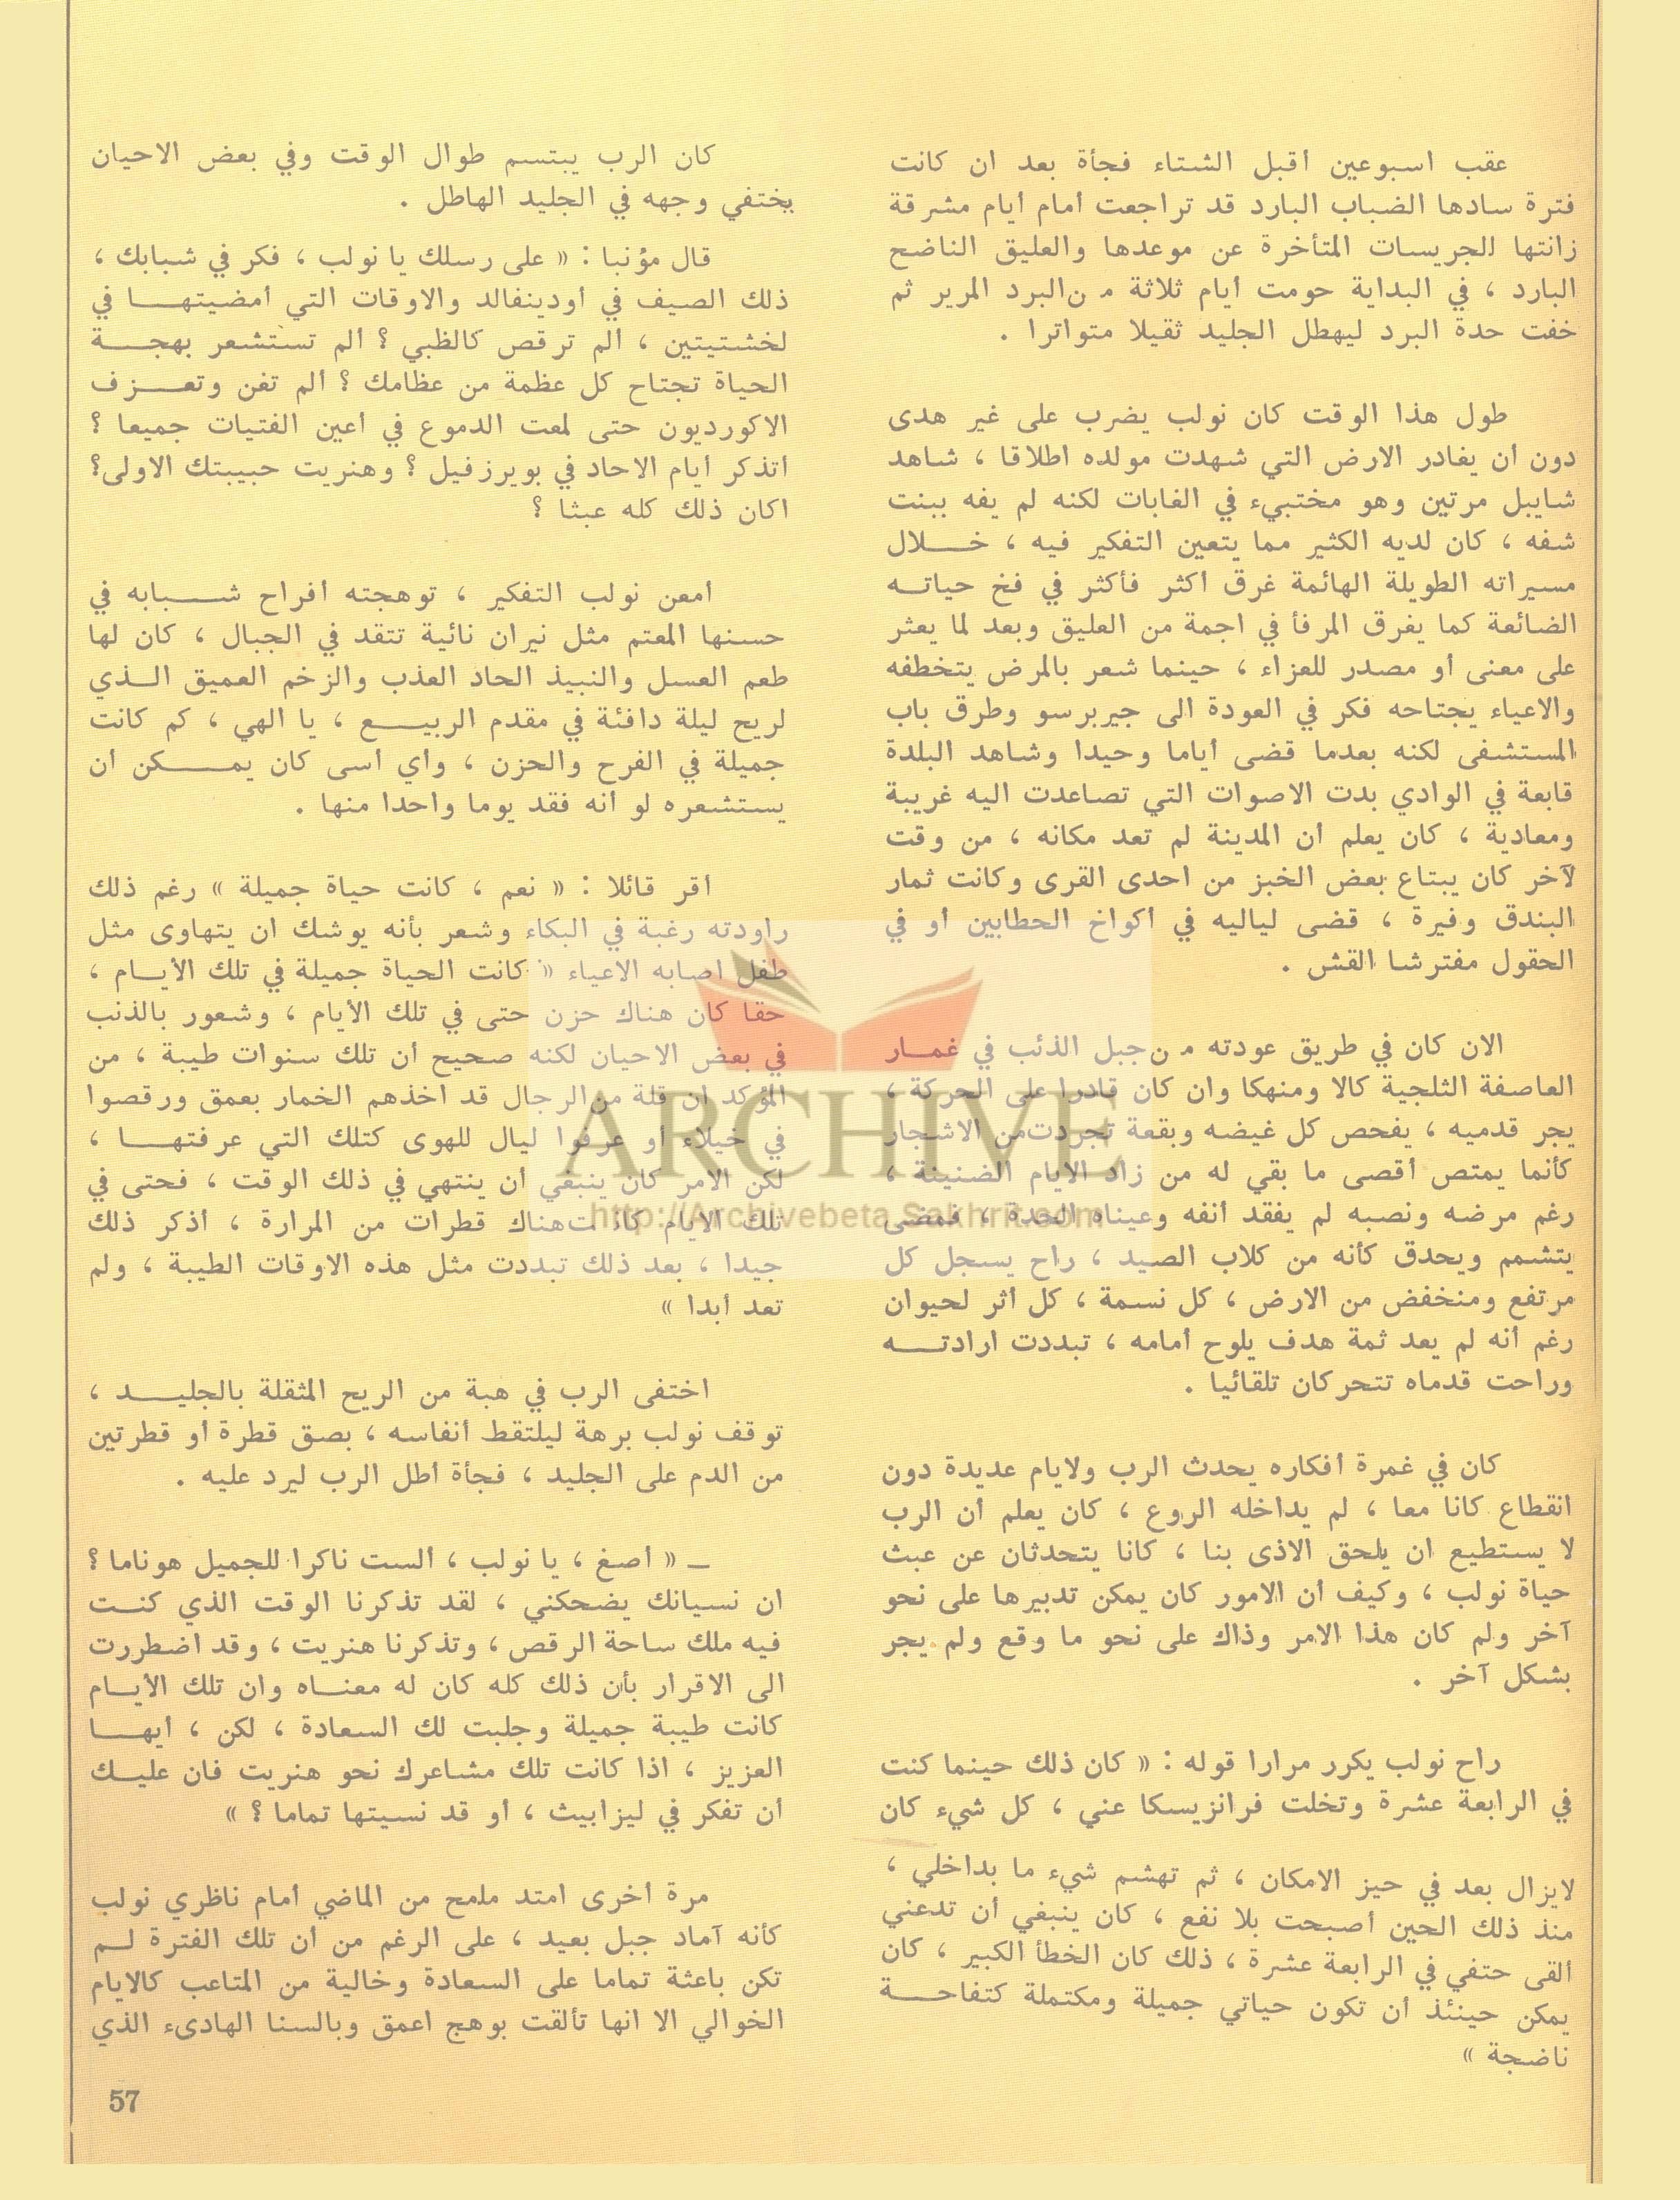 عقب اسبوعين أقبل الشتاء فجأة بعد ان كانت
فترة سادها الضباب البارد قد تراجعت أمام أيام مشرقة
زانتها الجريسات المتأخرة عن موعدها والعليق الناضح
البارد ، في البداية حومت أيام ثلاثة من البرد المرير ثم
خفت حدة البرد ليهطل الجليد ثقيلا متواترا .
طول هذا الوقت كان نولب يضرب على غير هدى
دون أن يغادر الارض التي شهدت مولده اطلاقا ، شاهد
شايبل مرتين وهو مختبيء في الغابات لكنه لم يفه ببنت
شفه ، كان لديه الكثير مما يتعين التفكير فيه ، خلال
مسيراته الطويلة الهائمة غرق أكثر فأكثر في فخ حياته
الضائعة كما يغرق المرفأ في اجمة من العليق وبعد لما يعثر
على معنى أو مصدر للعزاء ، حينما شعر بالمرض يتخطفه
والاعياء يجتاحه فكر في العودة الى جيربرسو وطرق باب
المستشفى لكنه بعدما قضى أياما وحيدا وشاهد البلدة
قابعة في الوادي بدت الاصوات التي تصاعدت اليه غريبة
ومعادية ، كان يعلم أن المدينة لم تعد مكانه ، من وقت
لآخر كان يبتاع بعض الخبز من احدى القرى وكانت ثمار
البندق وفيرة ، قضى لياليه في أكواخ الحطابين أو في
الحقول مفترشا القش .
الان كان في طريق عودته من جبل الذئب في غمار
العاصفة الثلجية كالا ومنهكا وان كان قادرا على الحركة ،
يجر قدميه ، يفحص كل غيضه وبقعة تجردت من الاشجار
كأنما يمتص أقصى ما بقي له من زاد الايام الضنينة ،
رغم مرضه ونصبه لم يفقد أنفه وعيناه الحدة ، فمضى
يتشمم ويحدق كأنه من كلاب الصيد ، راح يسجل كل
مرتفع ومنخفض من الارض ، كل نسمة ، كل أثر لحيوان
رغم أنه لم يعد ثمة هدف يلوح أمامه ، تبددت ارادته
وراحت قدماه تتحركان تلقائيا .
كان في غمرة أفكاره يحدث الرب ولايام عديدة دون
انقطاع كانا معا ، لم يداخله الروع ، كان يعلم أن الرب
لا يستطيع ان يلحق الاذى بنا ، كانا يتحدثان عن عبث
حياة نولب ، وكيف أن الامور كان يمكن تدبيرها على نحو
آخر ولم كان هذا الامر وذاك على نحو ما وقع ولم يجر
بشكل آخر .
راح نولب يكرر مرارا قوله : « كان ذلك حينما كنت
في الرابعة عشرة وتخلت فرانزيسكا عني ، كل شيء كان
لايزال بعد في حيز الامكان ، ثم تهشم شيء ما بداخلي ،
منذ ذلك الحين أصبحت بلا نفع ، كان ينبغي أن تدعني
ألقى حتفي في الرابعة عشرة ، ذلك كان الخطأ الكبير ، كان
يمكن حينئذ أن تكون حياتي جميلة ومكتملة كتفاحة
ناضجة »
كان الرب يبتسم طوال الوقت وفي بعض الاحيان
يختفي وجهه في الجليد الهاطل .
قال مؤنبا : « على رسلك يا نولب ، فكر في شبابك ،
ذلك الصيف في أودينفالد والاوقات التي أمضيتها في
لخشتيتين ، ألم ترقص كالظبي ؟ ألم تستشعر بهجة
الحياة تجتاح كل عظمة من عظامك ؟ ألم تغن وتعزف
الاكورديون حتى لمعت الدموع في أعين الفتيات جميعا ؟
أتذكر أيام الاحاد في بويرزفيل ؟ وهنريت حبيبتك الاولى؟
اكان ذلك كله عبثا ؟
أمعن نولب التفكير ، توهجته أفراح شبابه في
حسنها المعتم مثل نيران نائية تتقد في الجبال ، كان لها
طعم العسل والنبيذ الحاد العذب والزخم العميق الذي
لريح ليلة دافئة في مقدم الربيع ، يا الهي ، كم كانت
جميلة في الفرح والحزن ، وأي أسى كان يمكن أن
يستشعره لو أنه فقد يوما واحدا منها .
أقر قائلا : « نعم ، كانت حياة جميلة » رغم ذلك
راودته رغبة في البكاء وشعر بأنه يوشك ان يتهاوى مثل
طفل اصابه الاعياء « كانت الحياة جميلة في تلك الأيام ،
حقا كان هناك حزن حتى في تلك الأيام ، وشعور بالذنب
في بعض الاحيان لكنه صحيح أن تلك سنوات طيبة ، من
المؤكد ان قلة من الرجال قد اخذهم الخمار بعمق ورقصوا
في خيلاء أو عرفوا ليال للهوى كتلك التي عرفتها ،
لكن الامر كان ينبغي أن ينتهي في ذلك الوقت ، فحتى في
تلك الايام كانت هناك قطرات من المرارة ، أذكر ذلك
جيدا ، بعد ذلك تبددت مثل هذه الاوقات الطيبة ، ولم
تعد أبدا »
اختفى الرب في هبة من الريح المثقلة بالجليد ،
توقف نولب برهة ليلتقط أنفاسه ، بصق قطرة أو قطرتين
من الدم على الجليد ، فجأة أطل الرب ليرد عليه .
ــ « أصغ ، يا نولب ، ألست ناكرا للجميل هوناما ؟
ان نسيانك يضحكني ، لقد تذكرنا الوقت الذي كنت
فيه ملك ساحة الرقص ، وتذكرنا هنريت ، وقد اضطررت
الى الاقرار بأن ذلك كله كان له معناه وان تلك الأيام
كانت طيبة جميلة وجلبت لك السعادة ، لكن ، أيها
العزيز ، اذا كانت تلك مشاعرك نحو هنريت فان عليك
أن تفكر في ليزابيث ، أو قد نسيتها تماما ؟ »
مرة أخرى امتد ملمح من الماضي أمام ناظري نولب
كأنه آماد جبل بعيد ، على الرغم من أن تلك الفترة لم
تكن باعثة تماما على السعادة وخالية من المتاعب كالايام
الخوالي الا انها تألقت بوهج اعمق وبالسنا الهادىء الذي
57
ARCHIVE
http://Archivebeta.Sakhrit.com